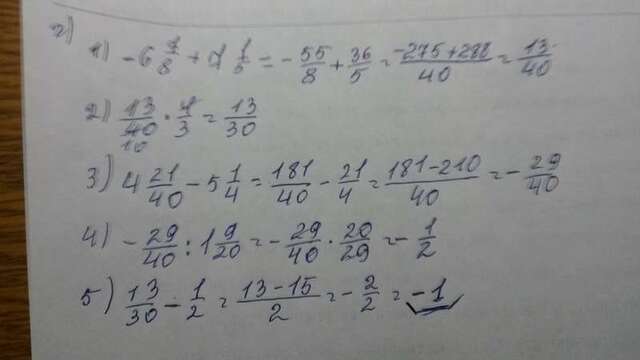 г)
1) -6 7/8 + 7 1/5 = - 55/8 + 36/5 = -275+288/40 = 13/40
2) 13/40 10 · 4/3 = 13/30
3) 4 21/40 - 5 1/4 = 181/40 - 21/4 = 181-210/40 = - 29/40
4) - 29/40 : 1 9/20 = - 29/40 · 20/29 = - 1/2
5) 13/30 - 1/2 = 13-15/2 = - 2/2 = -1